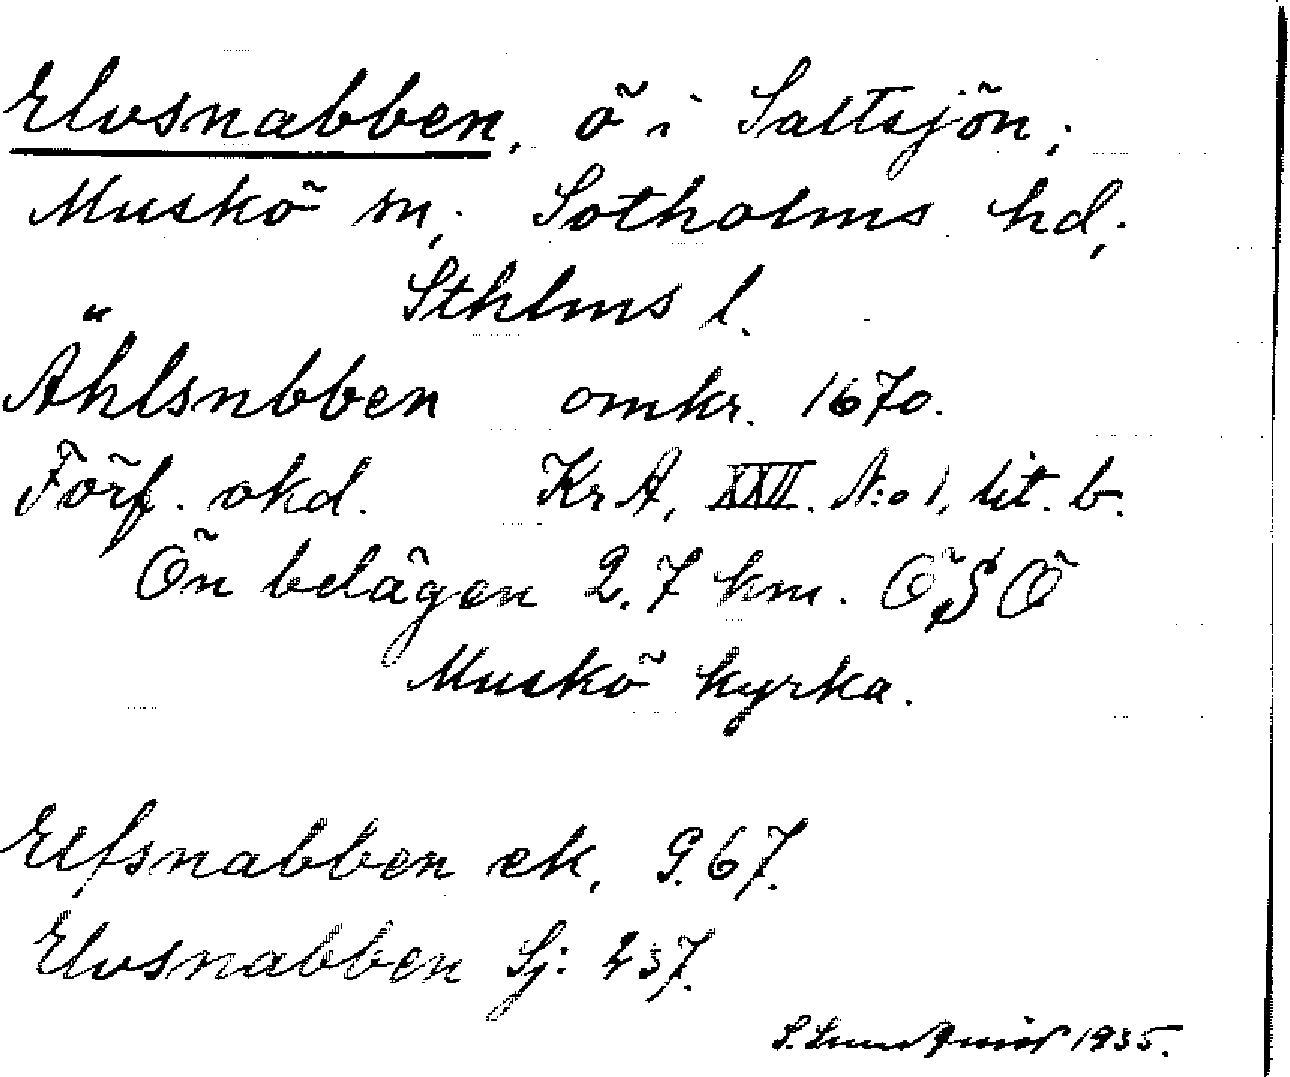 Elvsnabben, ö i Saltsjön;
Muskö sn; Sotholms hd;
Sthlms l.
Ählsnbben omkr. 1670.
Förf. okd. KrA, XXVI. N:o 1, lit. b.
Ön belägen 2.7 km. ÖSÖ
Muskö kyrka.
Elfsnabben ek. G. 67.
Elvsnabben Sj: 237.
S. Lundquist 1935.